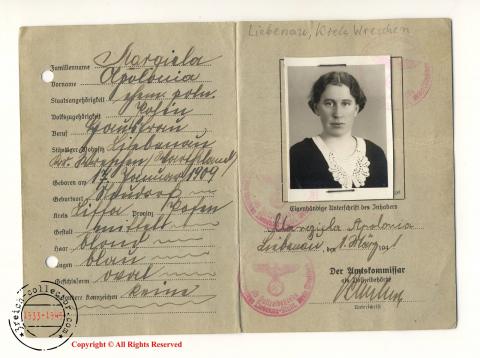 Familienname Margiela
Vorname Apolonia
Staatsangehörigkeit ehem. poln.
Volkszugehörigkeit Polin
Beruf Hausfrau
Ständiger Wohnsitz Liebenau
Kr. Wreschen (Wartheland)
Geboren am 17. Januar 1909
Geburtsort
Kreis Lissa Provinz Posen
Gestalt mittel
Haar blond
Augen blau
Gesichtsform oval
Besondere Kennzeichen keine
Liebenau, Kreis Wreschen
Eigenhändige Unterschrift des Inhabers
Margiela Apolonia
Liebenau, den 1. März 1941
Der Amtskommissar
als Polizeibehörde
Unterschrift
3reich-collector.com
1933-1945
Copyright © All Rights Reserved